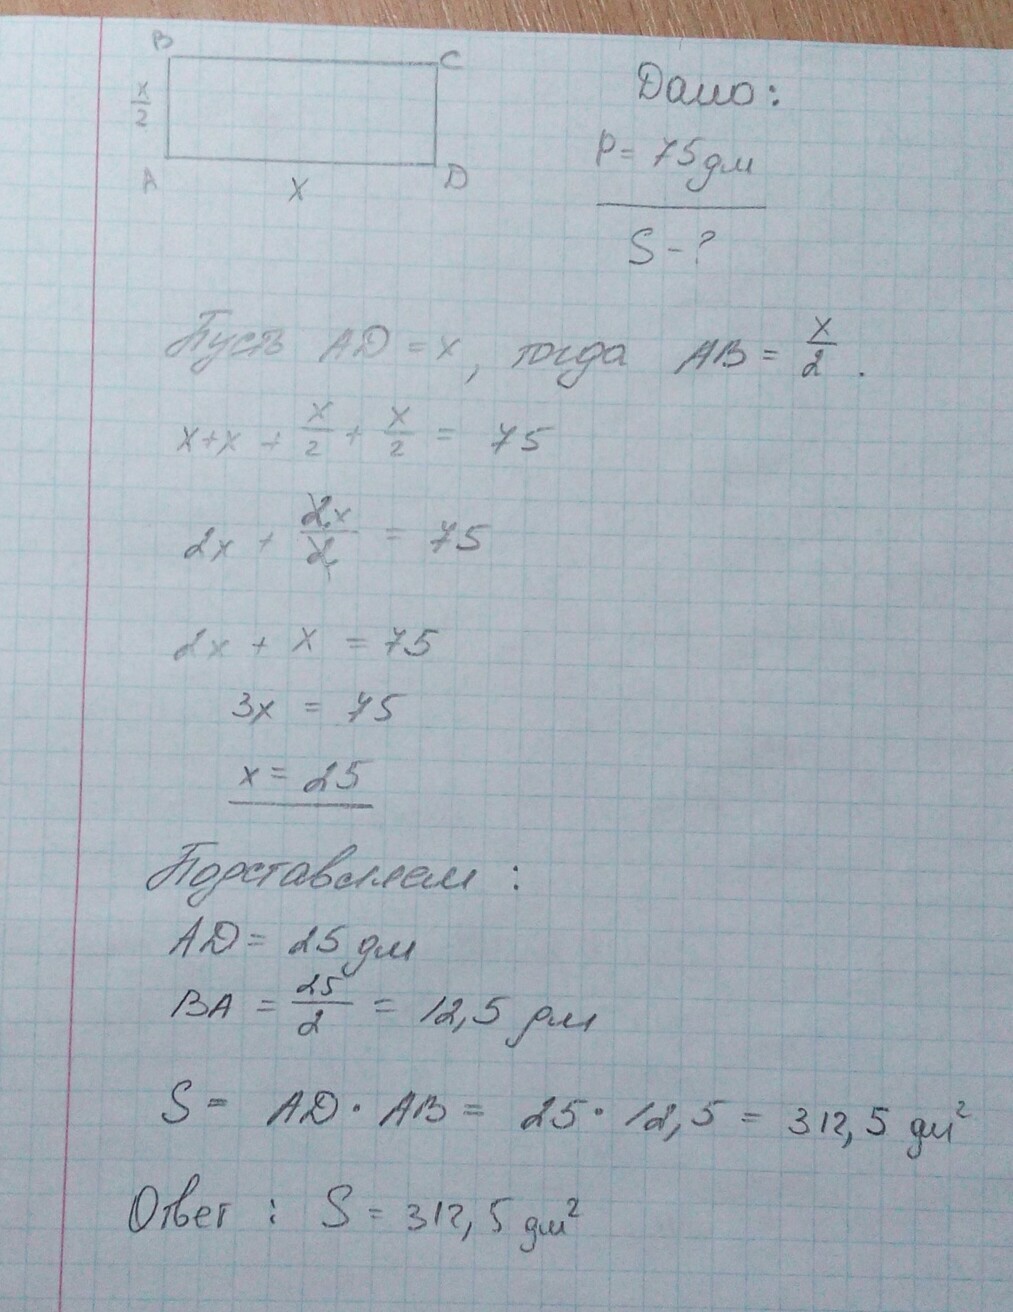 B
C
x/2
A
D
x
Дано:
P = 75 дм
S - ?
Пусть AD = x, тогда AB = x/2.
x + x + x/2 + x/2 = 75
2x + 2x/2 = 75
2x + x = 75
3x = 75
x = 25
Подставляем:
AD = 25 дм
BA = 25/2 = 12,5 дм
S = AD · AB = 25 · 12,5 = 312,5 дм²
Ответ: S = 312,5 дм²